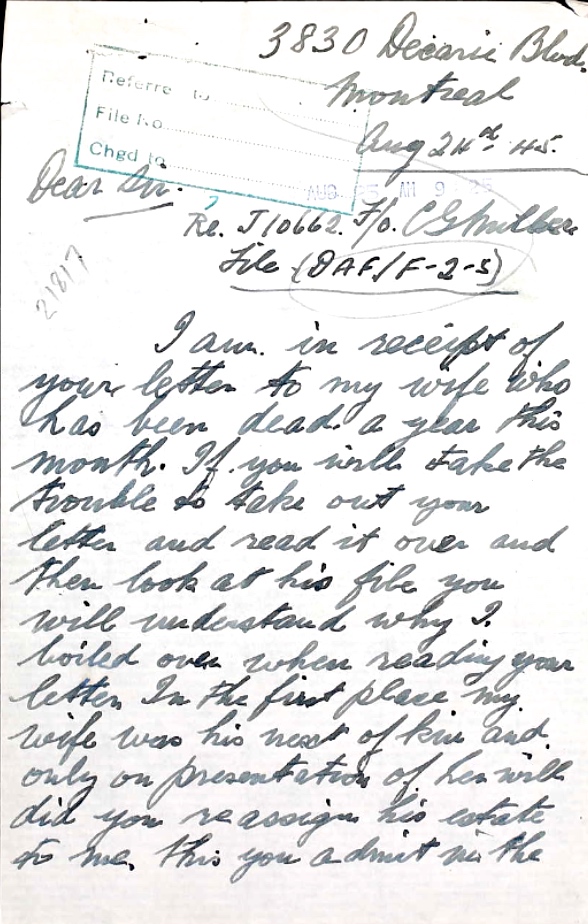 3830 Decarie Blvd.
Montreal
Aug 24th 45.
Referre to
File No
Chgd to
AUG 25 AM 9:25
Dear Sir.
Re. J10662. F/o. C G
File (DAF/F-2-5)
21817
I am. in receipt of
your letter to my wife who
has been dead a year this
month. If you will take the
trouble to take out your
letter and read it over and
then look at his file you
will understand why I.
boiled over when reading your
letter. In the first place my
wife was his next of kin and
only on presentation of her will
did you reassign his estate
to me, this you admit in the